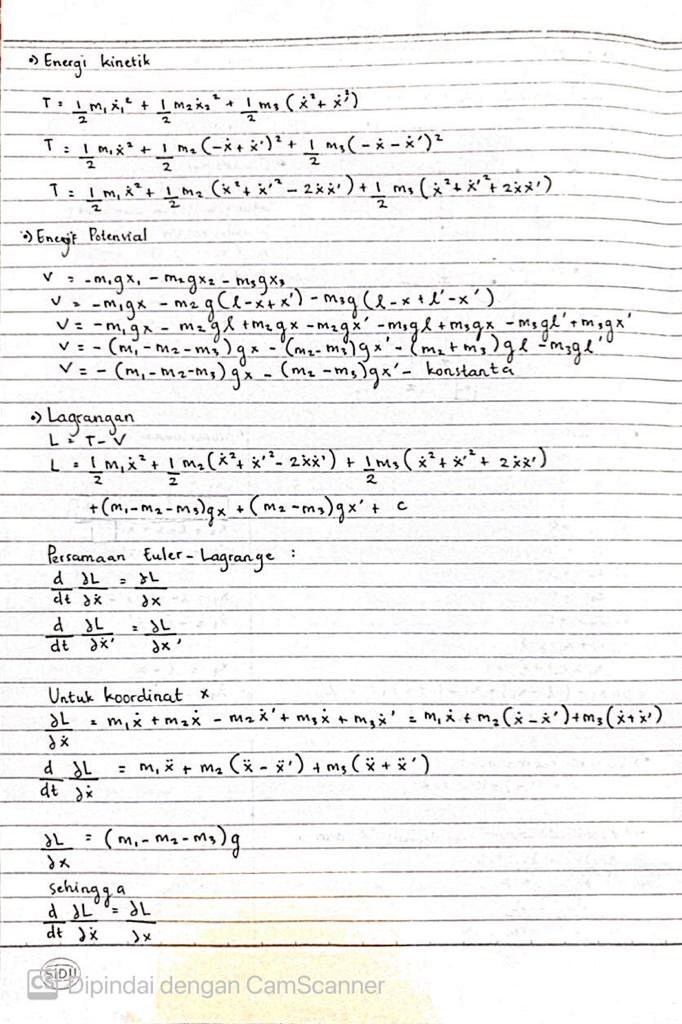 •) Energi kinetik
T = 1/2 m₁ẋ₁² + 1/2 m₂ẋ₂² + 1/2 m₃ (ẋ² + ẋ²)
T = 1/2 m₁ẋ² + 1/2 m₂ (-ẋ + ẋ')² + 1/2 m₃ (-ẋ - ẋ')²
T = 1/2 m₁ẋ² + 1/2 m₂ (ẋ² + ẋ'² - 2ẋẋ') + 1/2 m₃ (ẋ² + ẋ'² + 2ẋẋ')
•) Energi Potensial
V = -m₁gx₁ - m₂gx₂ - m₃gx₃
V = -m₁gx - m₂g(l-x+x') - m₃g(l-x+l'-x')
V = -m₁gx - m₂gl + m₂gx - m₂gx' - m₃gl + m₃gx - m₃gl' + m₃gx'
V = -(m₁-m₂-m₃)gx - (m₂-m₃)gx' - (m₂+m₃)gl - m₃gl'
V = -(m₁-m₂-m₃)gx - (m₂-m₃)gx' - konstanta
•) Lagrangan
L = T-V
L = 1/2 m₁ẋ² + 1/2 m₂(ẋ² + ẋ'² - 2ẋẋ') + 1/2 m₃(ẋ² + ẋ'² + 2ẋẋ')
+(m₁-m₂-m₃)gx + (m₂-m₃)gx' + c
Persamaan Euler-Lagrange :
d/dt ∂L/∂ẋ = ∂L/∂x
d/dt ∂L/∂ẋ' = ∂L/∂x'
Untuk koordinat x
∂L/∂ẋ = m₁ẋ + m₂ẋ - m₂ẋ' + m₃ẋ + m₃ẋ' = m₁ẋ + m₂(ẋ-ẋ') + m₃(ẋ+ẋ')
d/dt ∂L/∂ẋ = m₁ẍ + m₂(ẍ-ẍ') + m₃(ẍ+ẍ')
∂L/∂x = (m₁-m₂-m₃)g
sehingga
d/dt ∂L/∂ẋ = ∂L/∂x
SiDU
CS Dipindai dengan CamScanner